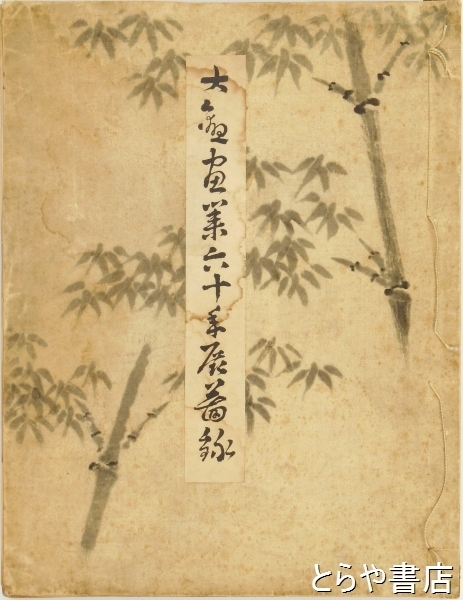 大観画業六十年展図録
とらや書店